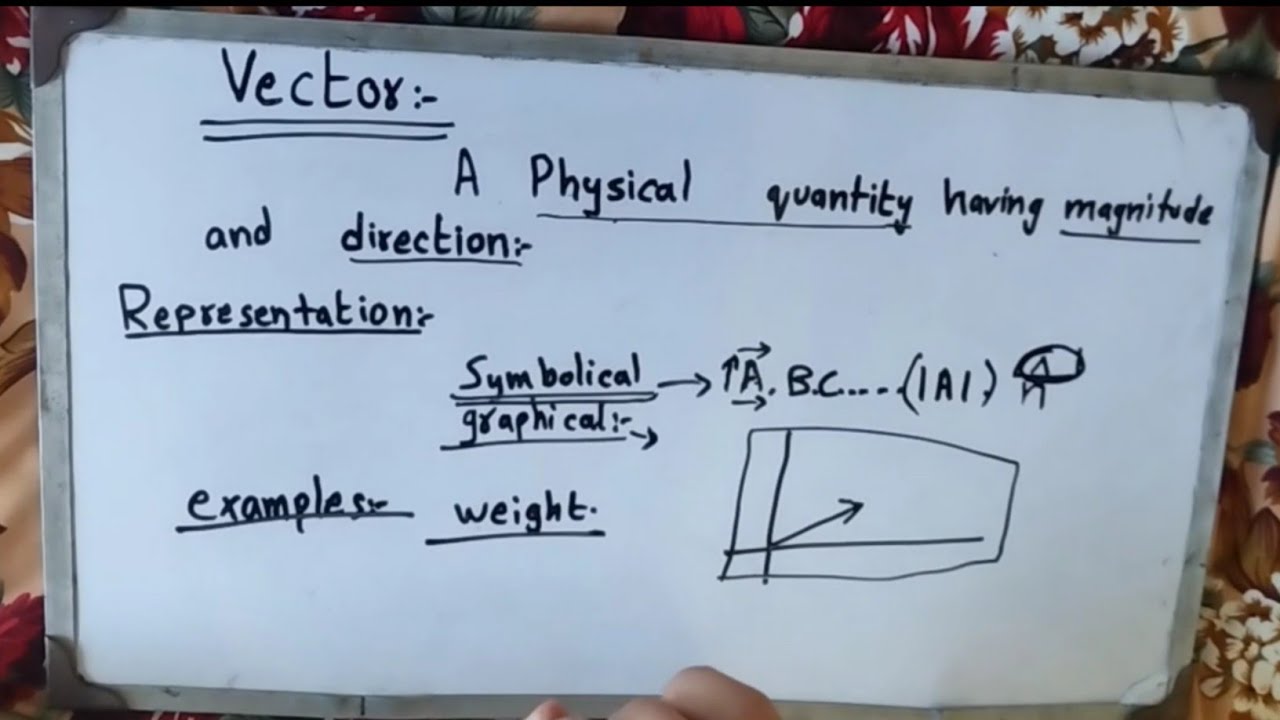 Vector:-
A Physical quantity having magnitude
and direction:-
Representation:-
Symbolical → ↑A⃗. B.C....(|A|) Â
graphical:-→
examples:- weight.